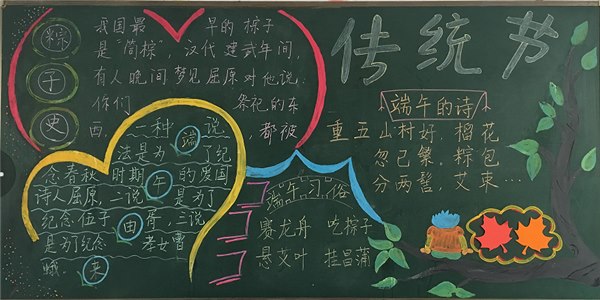 传统节
粽
子
史
我国最早的粽子
是“筒粽”,汉代建武年间,
有人晚间梦见屈原对他说:
你们祭祀的东
西,都被
一种说
法是为了纪
念春秋时期的爱国
诗人屈原,二说是为了
纪念伍子胥,三说
是为纪念孝女曹
娥
端
午
由
来
端午的诗
重五山村好,榴花
忽已繁,粽包
分两髻,艾束…
端午习俗
赛龙舟 吃粽子
悬艾叶 挂昌蒲